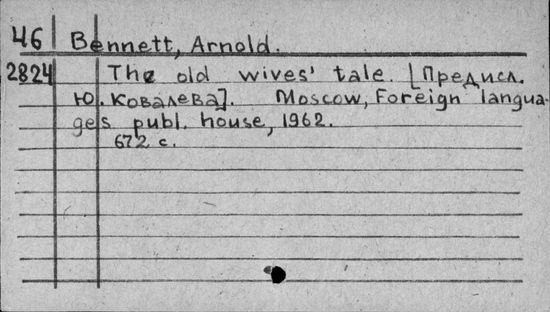 46 Bennett, Arnold.
2824 The old wives' tale. [Предисл.
Ю. Ковалева]. Moscow, Foreign langua-
ges publ. house, 1962.
672 с.